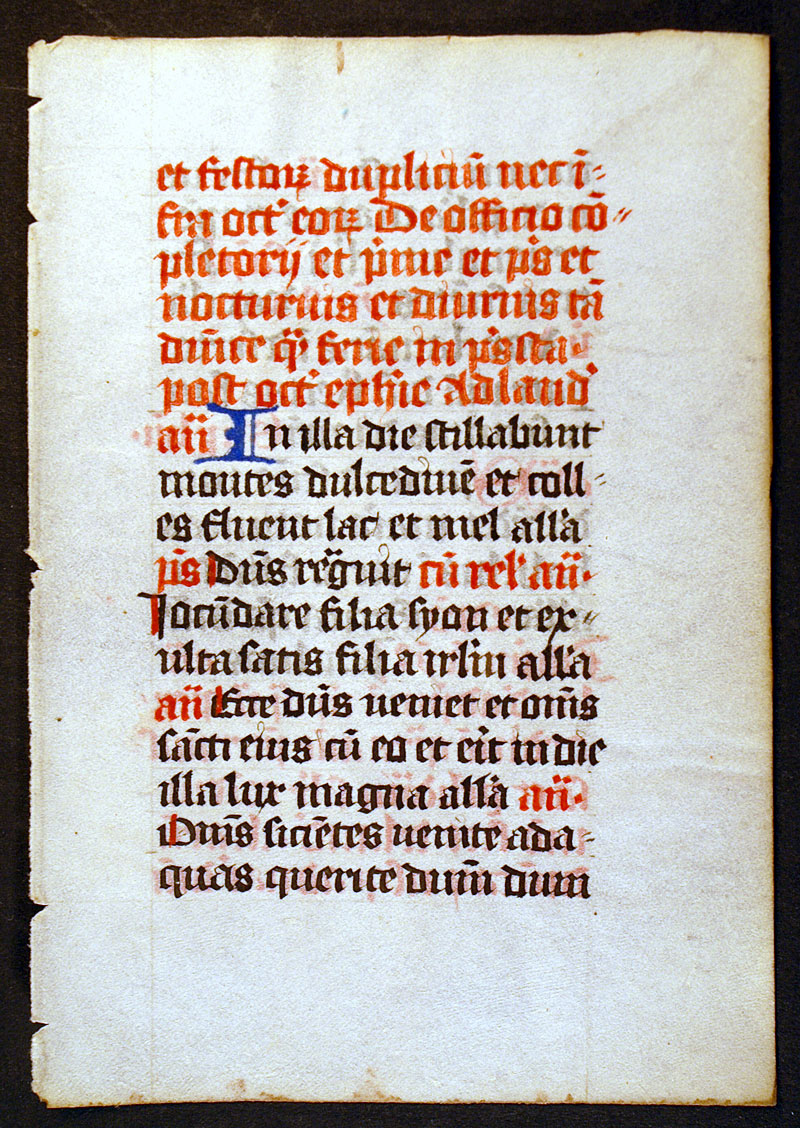 et festoꝝ dupliciū nec ī⸗
fra oct' eoꝝ De officio cō⸗
pletorij et p̄me et p̄s et
nocturnis et diurnis tā
dn̄ice q̄ ferie in p̄ſ sta
post oct' ephīe Ad laud'
an̄ In illa die stillabunt
montes dulcedinē et coll⸗
es fluent lac et mel all'a
p̄s Dn̄s regīt cū rel' an̄.
Jocūdare filia syon et ex⸗
ulta satis filia irl'm all'a
an̄ Ecce dn̄s ueniet et om̄s
sācti eius cū eo et erit in die
illa lux magna all'a an̄.
Om̄s sicientes uenite ad a⸗
quas querite dnm̄ dum